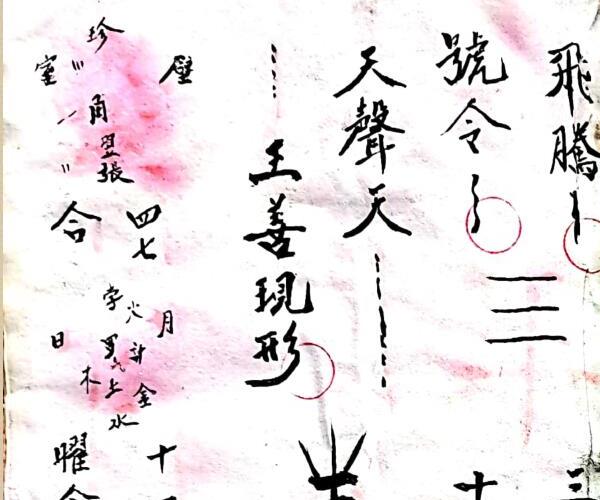 飛騰
三
號令
三
十
天聲天
王善現形
壁
四七
月
十
珍
角
翌張
火計金
孛
羅氣土水
木
室
合
日
曜合